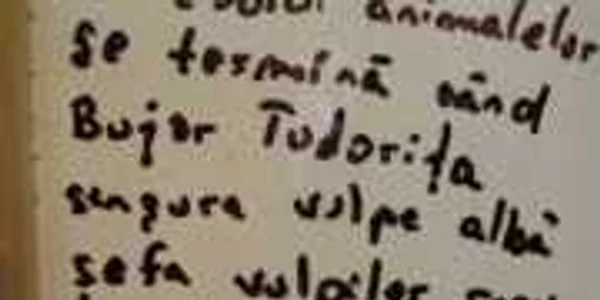 animalelor
se termină când
Bujor Tudorița
singura vulpe albă
șefa vulpilor